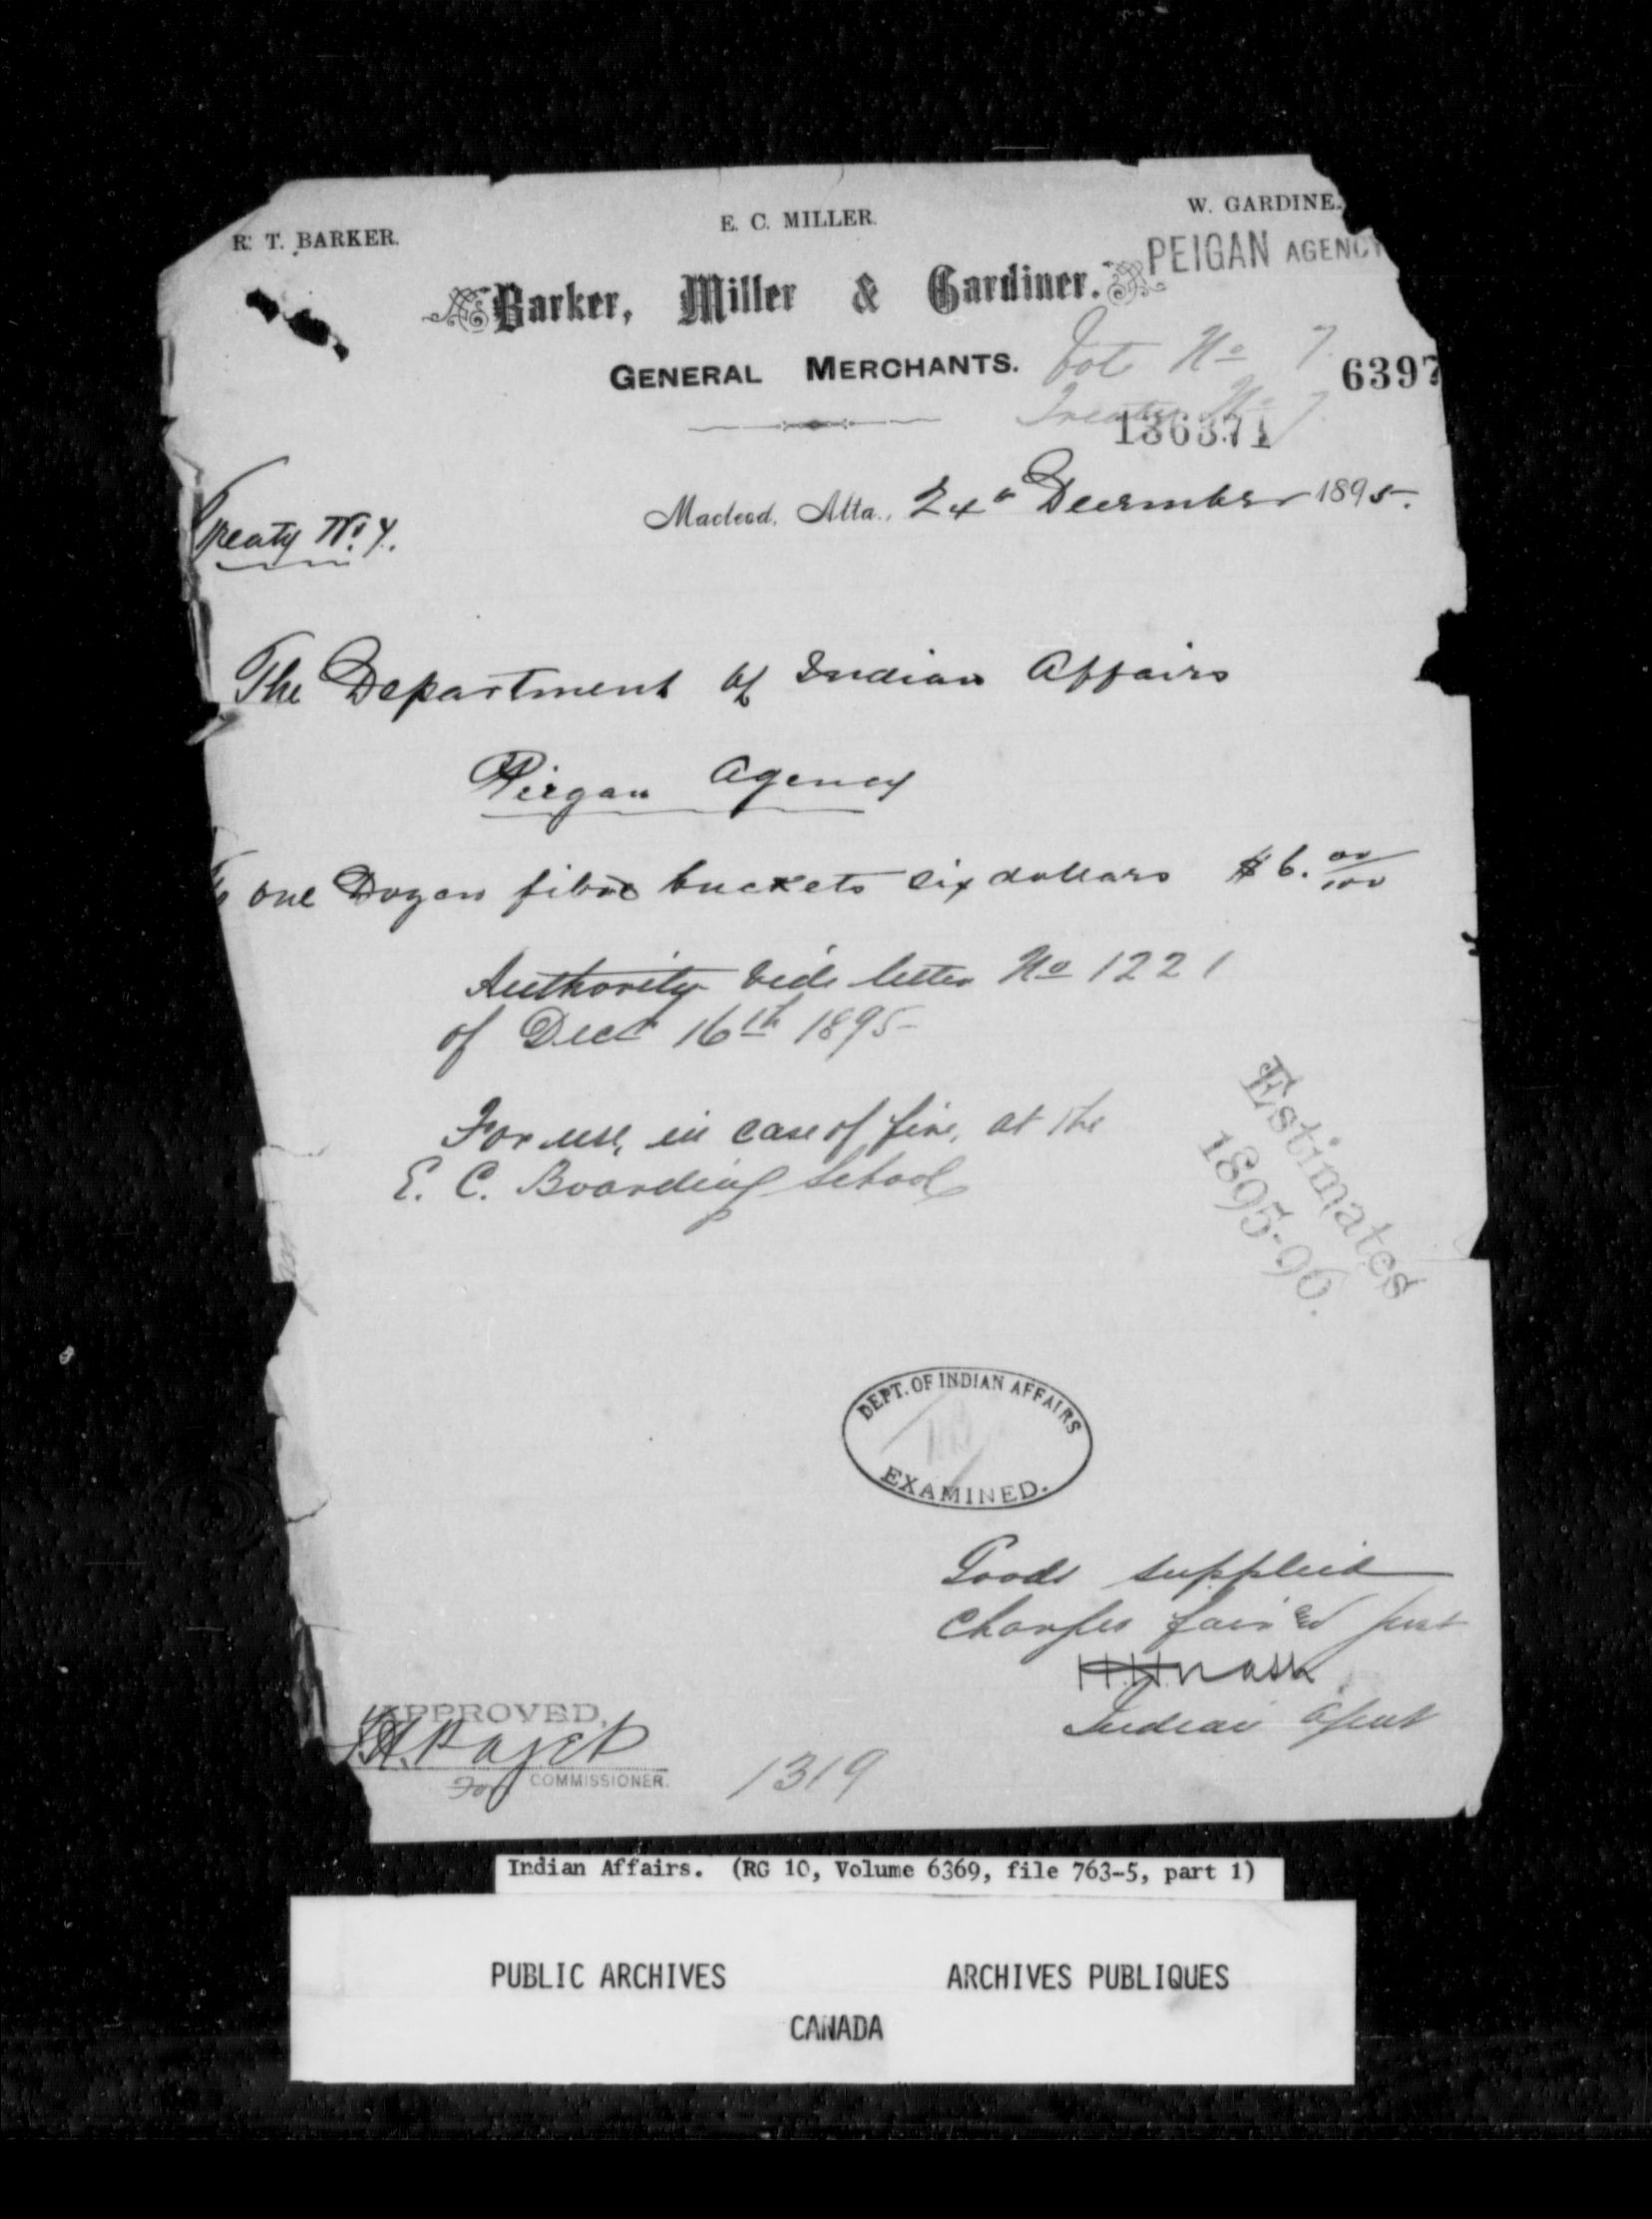 R. T. BARKER.
E. C. MILLER.
W. GARDINE
PEIGAN AGENCY
Barker, Miller & Gardiner.
GENERAL MERCHANTS.
Vote No 7.
6397
Treaty No 7
136371
Macleod, Alta., 24th December 1895.
Treaty No. 7.
The Department of Indian Affairs
Piegan Agency
To one Dozen fibre buckets six dollars $6. 00/100
Authority vide letter No 1221
of Decr 16th 1895
For use, in case of fire, at the
E. C. Boarding School
Estimates
1895-96.
DEPT. OF INDIAN AFFAIRS
EXAMINED.
Goods supplied
Charges fair and just
H.H. Nash
Indian Agent
APPROVED,
Paget
For COMMISSIONER.
1319
Indian Affairs. (RG 10, Volume 6369, file 763-5, part 1)
PUBLIC ARCHIVES ARCHIVES PUBLIQUES
CANADA